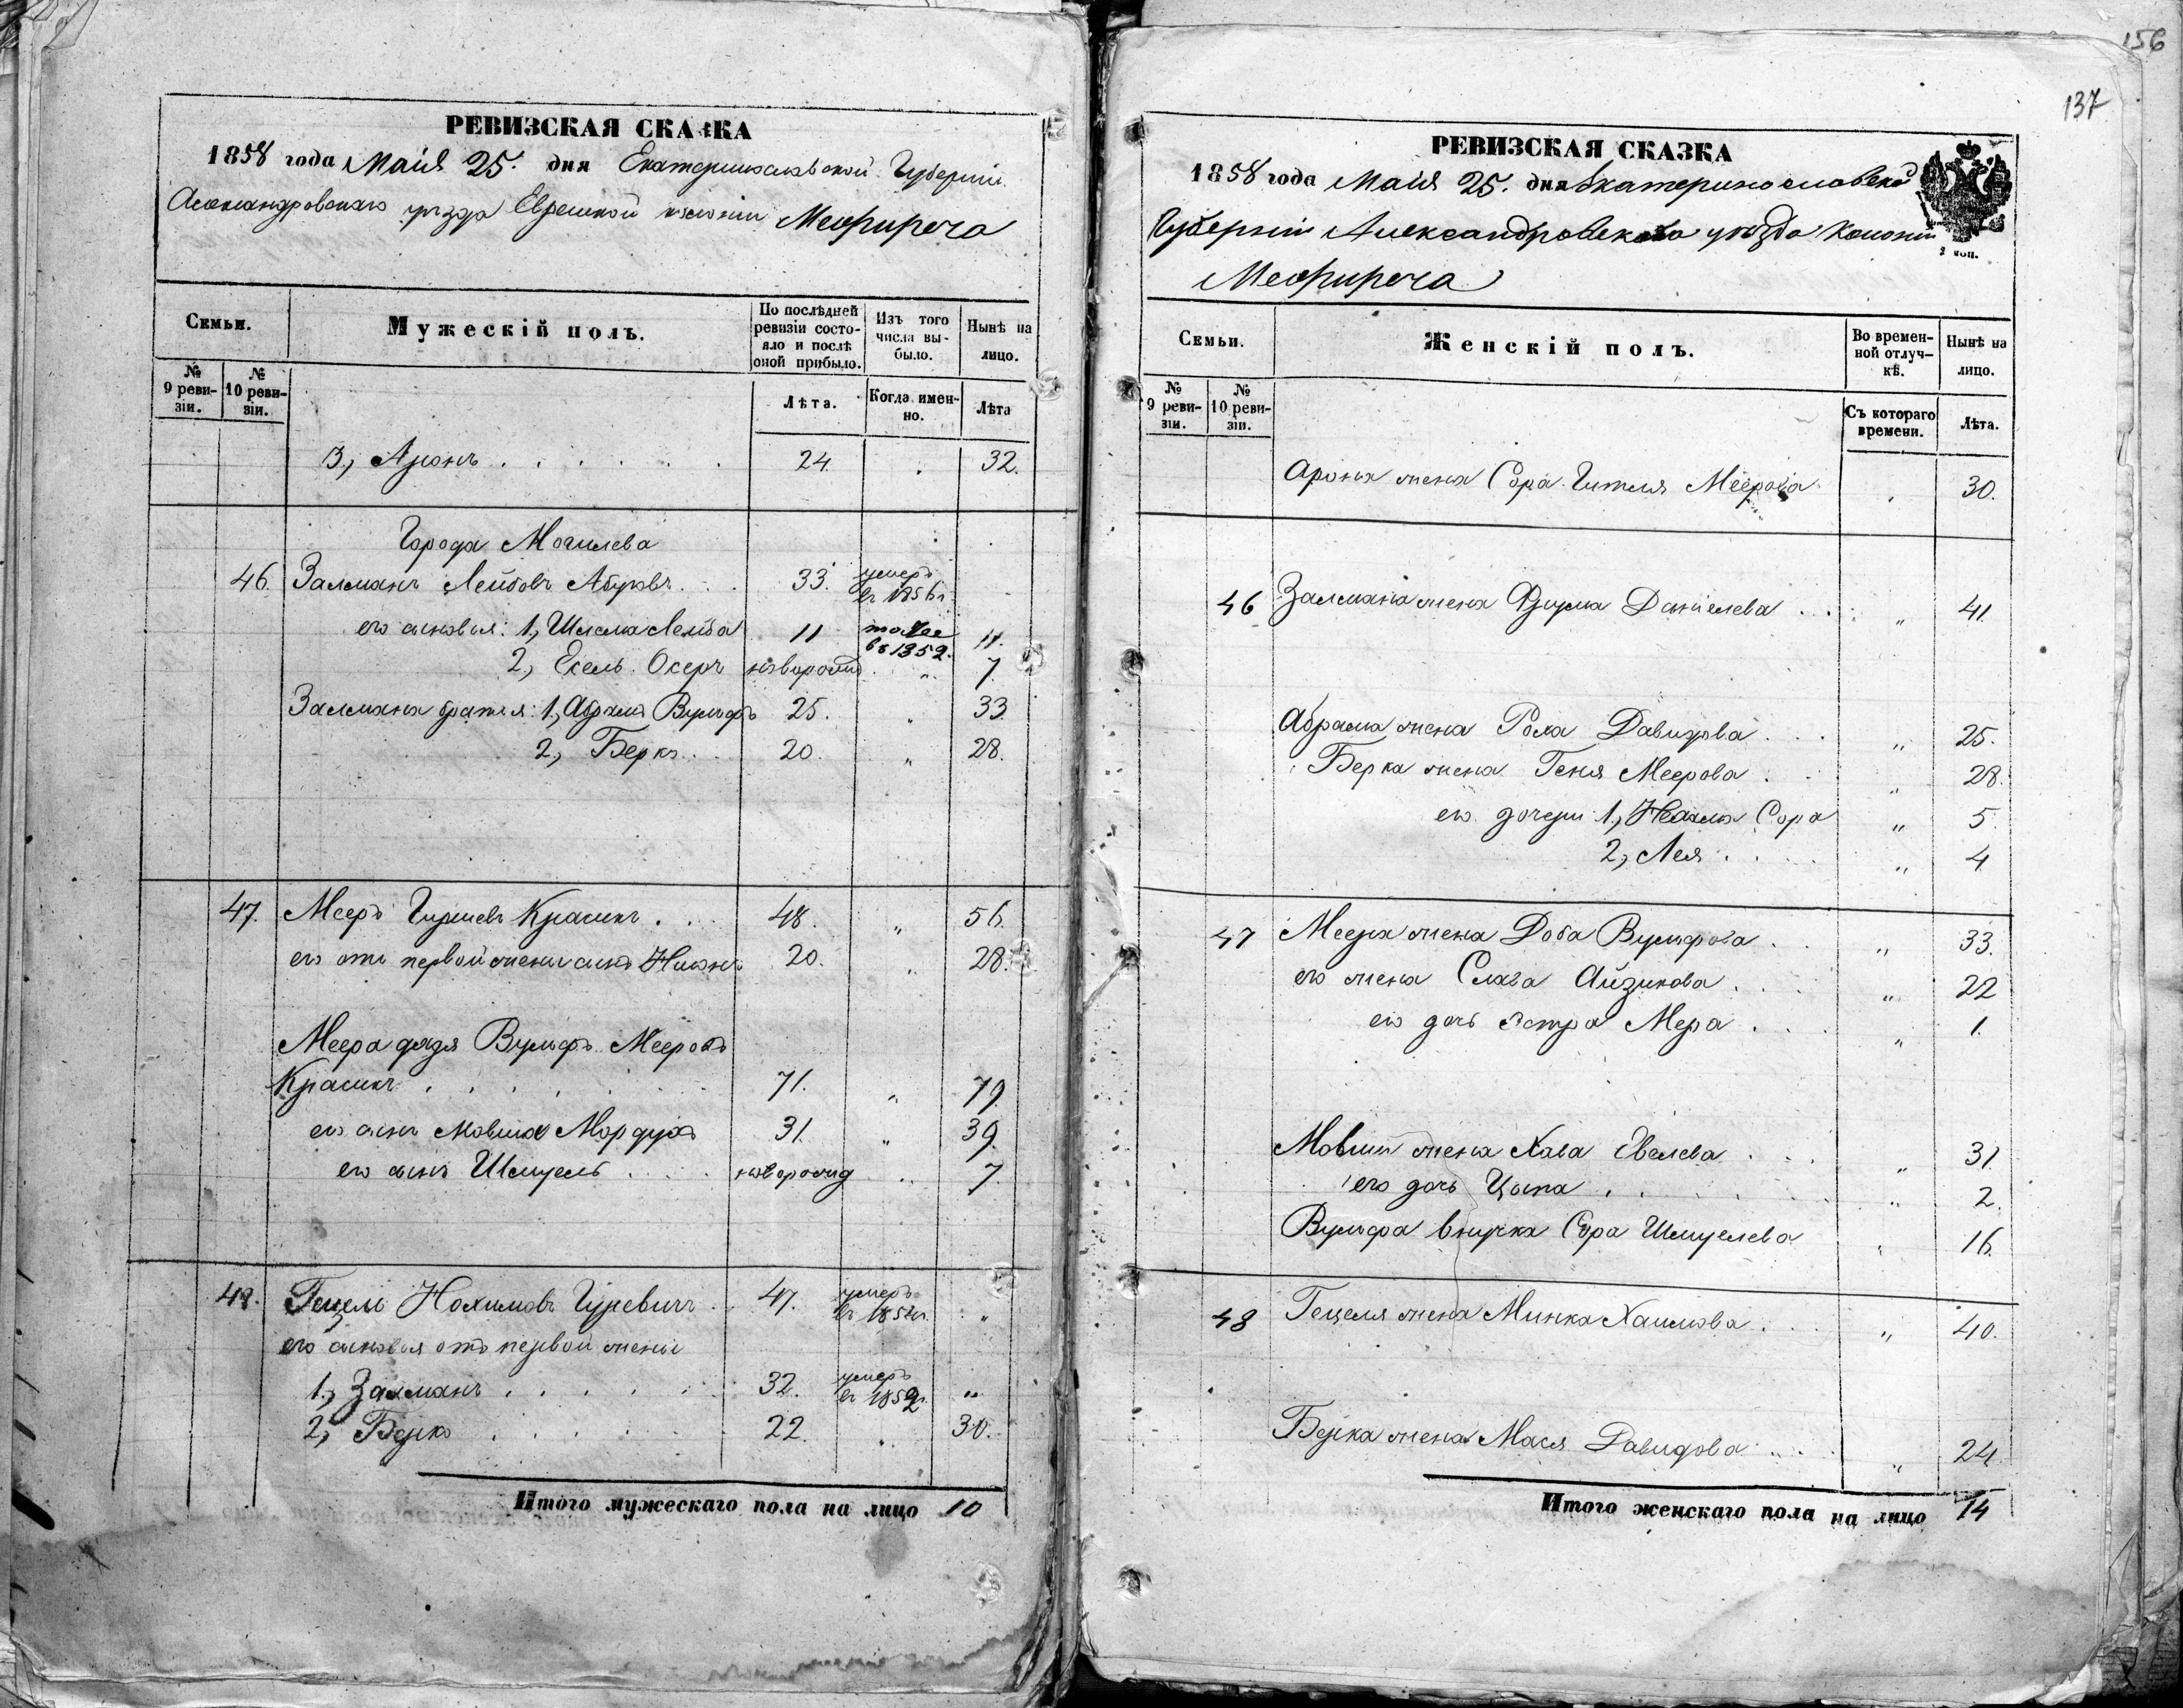 РЕВИЗСКАЯ СКАЗКА
1858 года Маія 25. дня Екатеринославской Губерніи
Александровскаго уѣзда Еврейской колоніи Межиреча
Семьи.
Мужескій полъ.
По послѣдней ревизіи состояло и послѣ оной прибыло.
Изъ того числа выбыло.
Нынѣ на лицо.
№ 9 ревизіи.
№ 10 ревизіи.
Лѣта.
Когда именно.
Лѣта
3, Аронъ . . . . . . 24. 32.
Города Могилева
46. Залманъ Лейбовъ . . . 33. умеръ въ 1856 г.
его сыновья: 1, Шлема Лейба 11 тоже въ 1852. 11.
2, Есель Осеръ новорожд. „ 7.
Залмана братья: 1, Абрамъ Вульфъ 25. „ 33.
2, Беркъ . . 20. „ 28.
47. Мееръ Гиршевъ Красикъ . . . 48. „ 56.
его отъ первой жены сынъ 20. „ 28.
Меера дядя Вульфъ Мееровъ
Красикъ . . . . . . 71. „ 79.
его сынъ Мовша Мордухъ 31. „ 39.
его сынъ Шмуель . . . новорожд „ 7.
48. Гецель Нохимовъ Гуревичъ . . 47. умеръ въ 1852 г. „
его сыновья отъ первой жены
1, Залманъ . . . . . 32. умеръ въ 1852 г. „
2, Берко . . . . . . 22. „ 30.
Итого мужескаго пола на лицо 10
156
137
РЕВИЗСКАЯ СКАЗКА
1858 года Маія 25. дня Екатеринославской
Губерніи Александровскаго уѣзда Колоніи
Межиреча
Семьи.
Женскій полъ.
Во временной отлучкѣ.
Нынѣ на лицо.
№ 9 ревизіи.
№ 10 ревизіи.
Съ котораго времени.
Лѣта.
Арона жена Сора Гителя Меерова 30.
46 Залмана жена Фрума Даніелева . . . „ 41.
Абрама жена Роха Давидова . . . „ 25.
Берка жена Геня Меерова . . „ 28.
его дочери 1, Нехама Сора „ 5.
2, Лея . . . . „ 4
47 Меера жена Доба Вульфова . . „ 33.
его жена Слава Айзикова . . . „ 22
его дочь Эстра Мера . . . „ 1.
Мовши жена Хава Евелева . . . „ 31.
его дочь Цыпа . . . . „ 2.
Вульфа внучка Сора Шмуелева „ 16.
48 Гецеля жена Минка Хаимова . . . „ 40.
Берка жена Мася Давидова . . . „ 24.
Итого женскаго пола на лицо 14